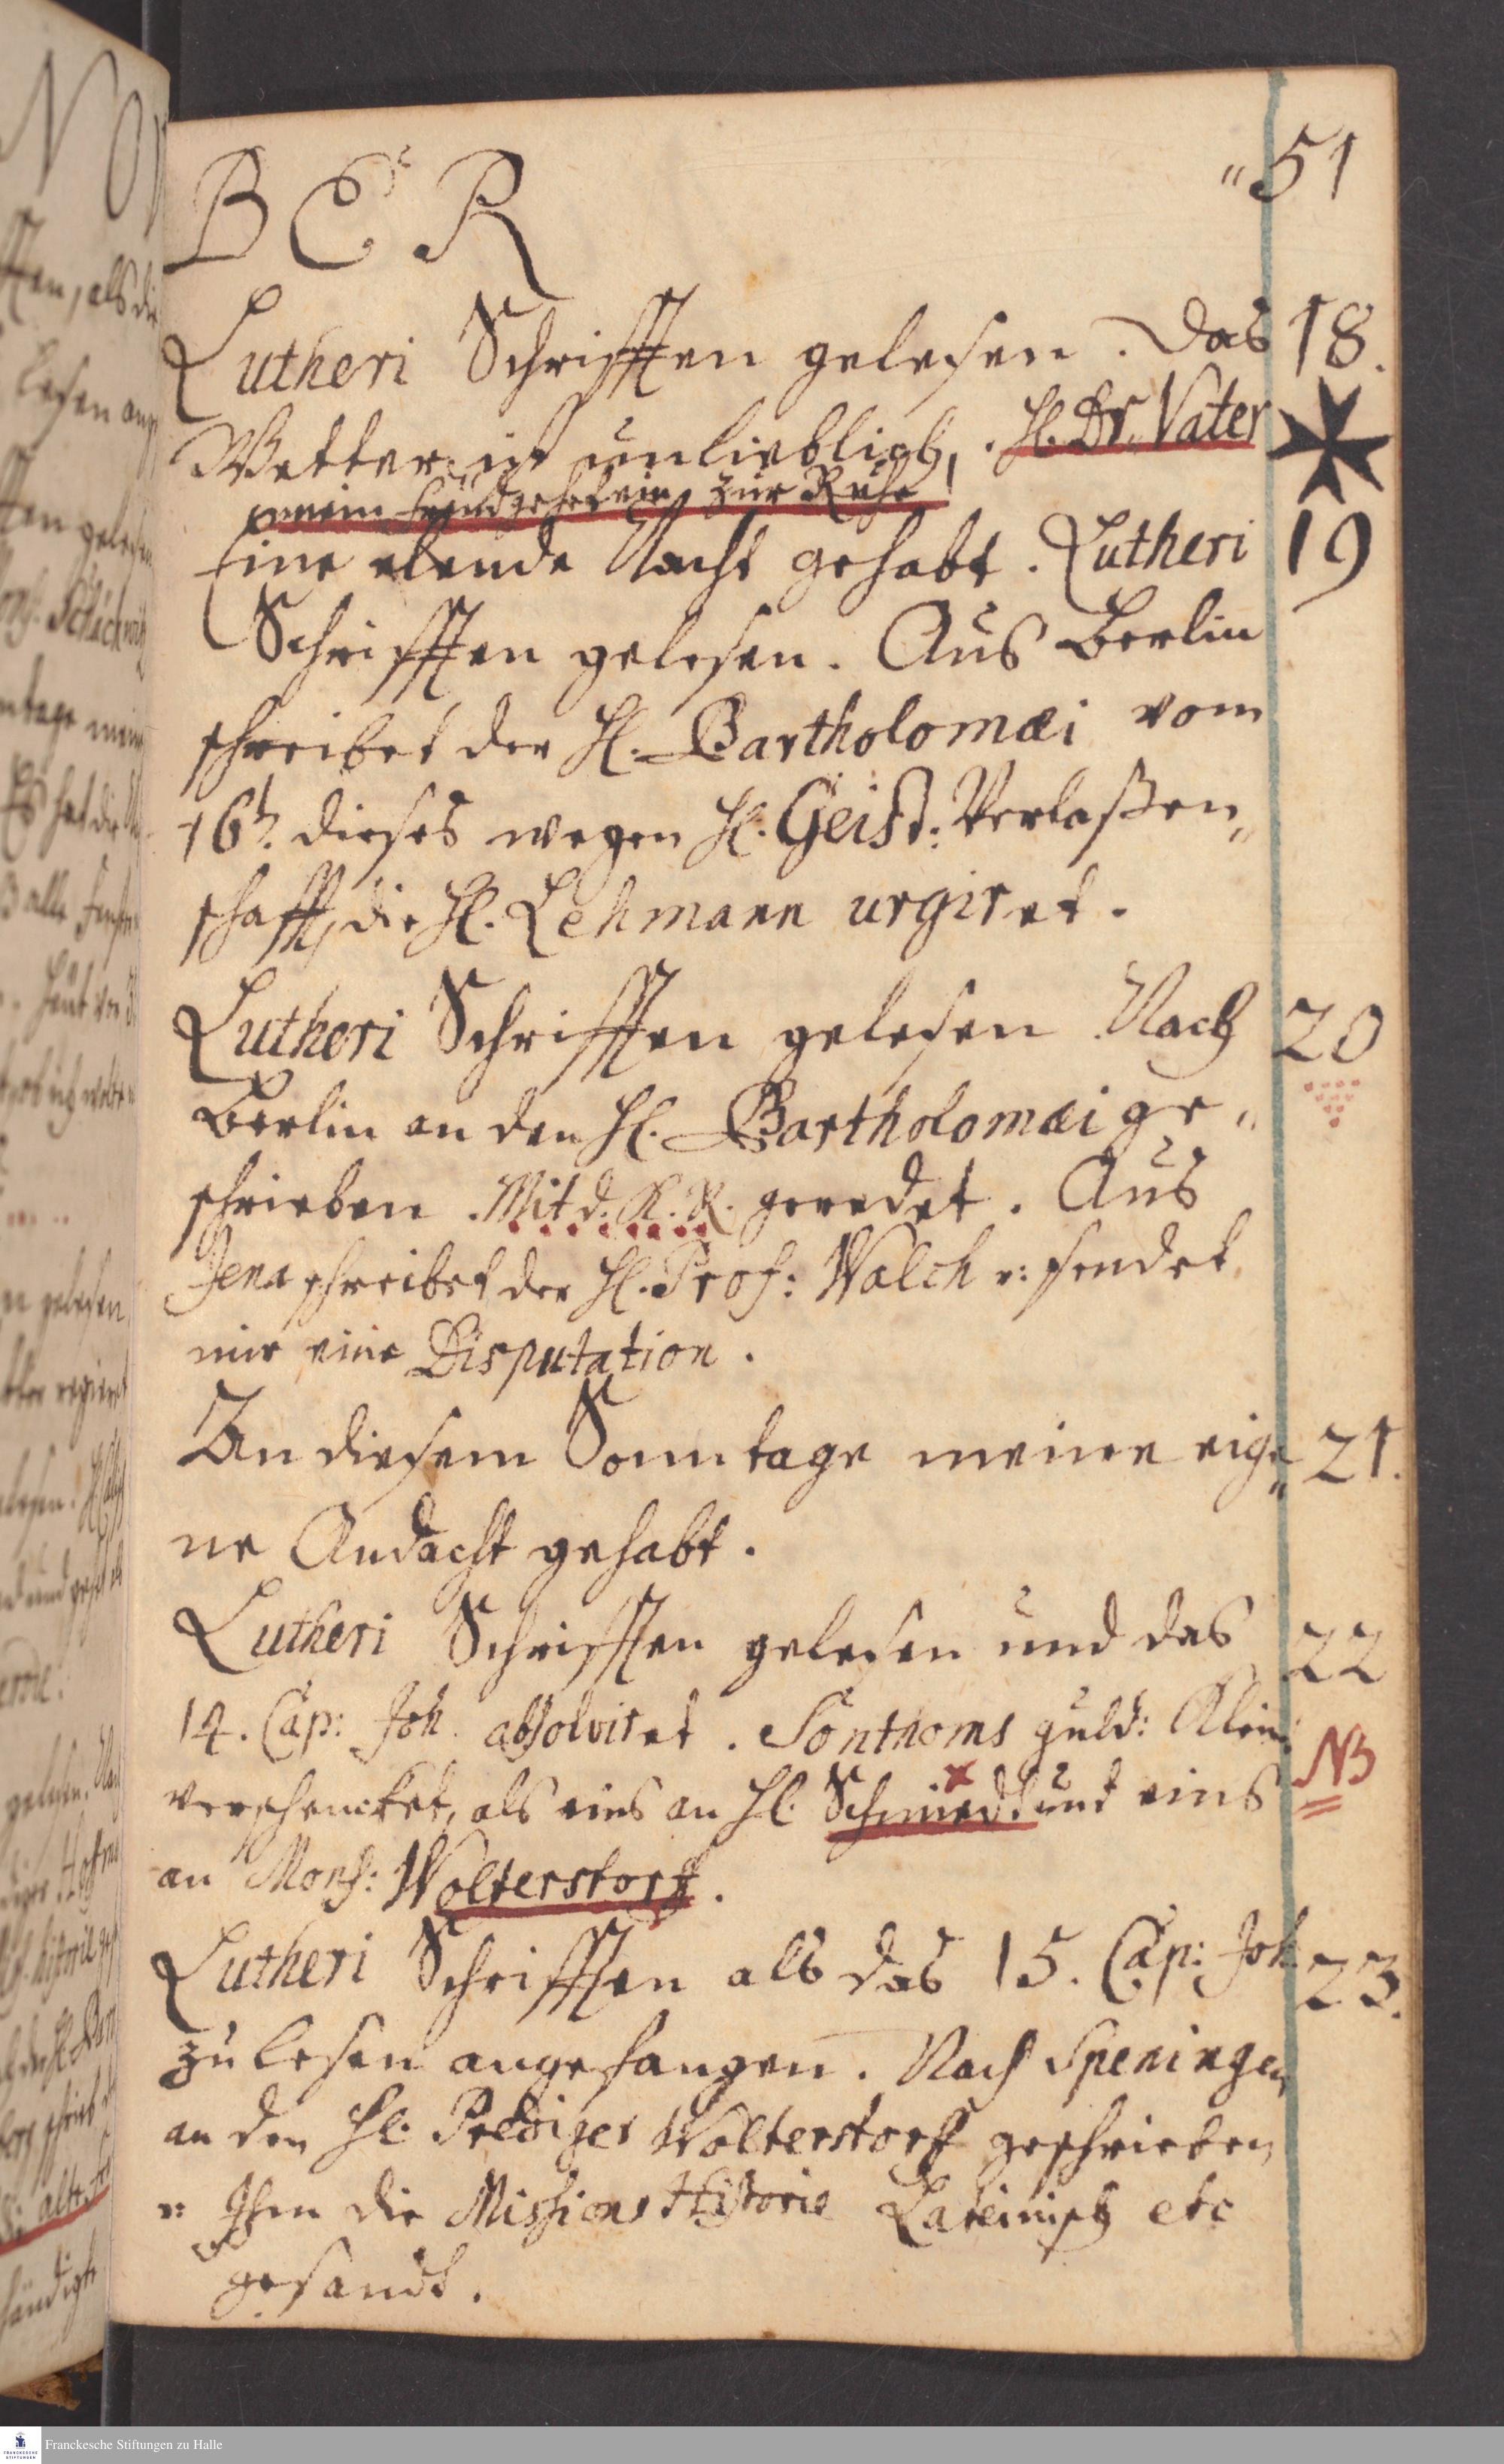 BER
„51
Lutheri Schrifften gelesen. Das 18.
Wetter ist unlieblich. H. Dr. Vater
mein Freund gehet ein zur Ruhe
Eine elende Nacht gehabt. Lutheri 19
Schrifften gelesen. Aus Berlin
schreibet der H. Bartholomæi vom
16t. dieses wegen H. Geist: Verlaßen„
schafft, die H. Lehmann urgiret.
Lutheri Schrifften gelesen Nach 20
Berlin an den H. Bartholomæi ge„
schrieben. Mit d. K. R. geredet. Aus
Jena schreibet der H. Prof: Walch u: sendet
mir eine Disputation.
An diesem Sonntage meine eige„ 21.
ne Andacht gehabt.
Lutheri Schrifften gelesen und das 22
14. Cap: Joh. absolviret. Sonthoms guld: Klein: NB
verschencket, als eins an H. Schmied. und eins
an Mons: Wolterstorf.
Lutheri Schrifften als das 15. Cap: Joh. 23.
zu lesen angefangen. Nach Speningen
an den H. Prediger Wolterstorff geschrieben
u: Ihm die Missions Historie Lateinisch etc
gesandt.
Franckesche Stiftungen zu Halle